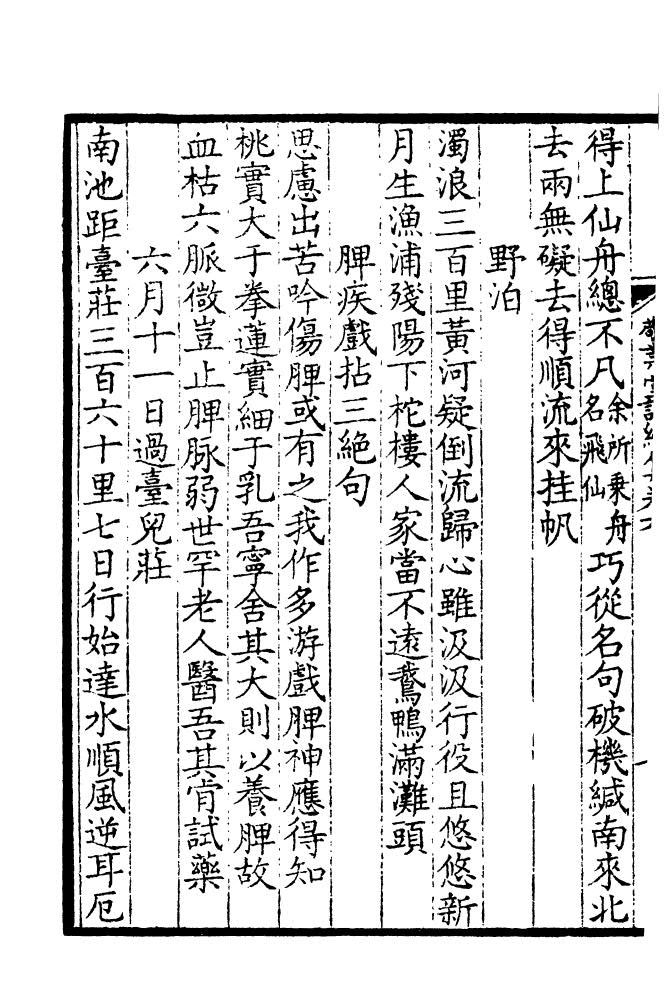 得上仙舟總不凡余所乘舟名飛仙巧從名句破機緘南來北
去兩無礙去得順流來挂帆
野泊
濁浪三百里黃河疑倒流歸心雖汲汲行役且悠悠新
月生漁浦殘陽下柁樓人家當不遠鵞鴨滿灘頭
脾疾戲拈三絕句
思慮出苦吟傷脾或有之我作多游戲脾神應得知
桃實大于拳蓮實細于乳吾寧舍其大則以養脾故
血枯六脈微豈止脾脉弱世罕老人醫吾其肯試藥
六月十一日過臺兒莊
南池距臺莊三百六十里七日行始達水順風逆耳厄